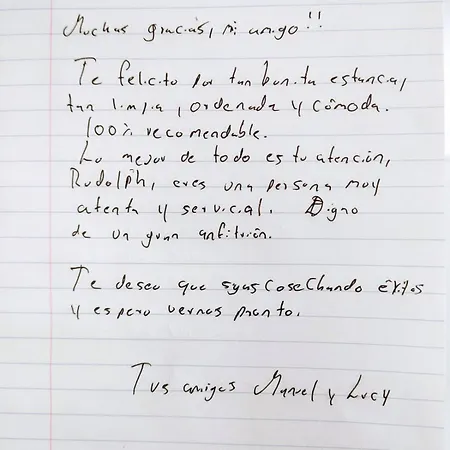 Muchas gracias, mi amigo!!
Te felicito por tan bonita estancia,
tan limpia, ordenada y cómoda.
100% recomendable.
Lo mejor de todo es tu atención,
Rudolph, eres una persona muy
atenta y servicial. Digno
de un gran anfitrión.
Te deseo que sigas cosechando éxitos
y espero vernos pronto.
Tus amigos Manuel y Lucy